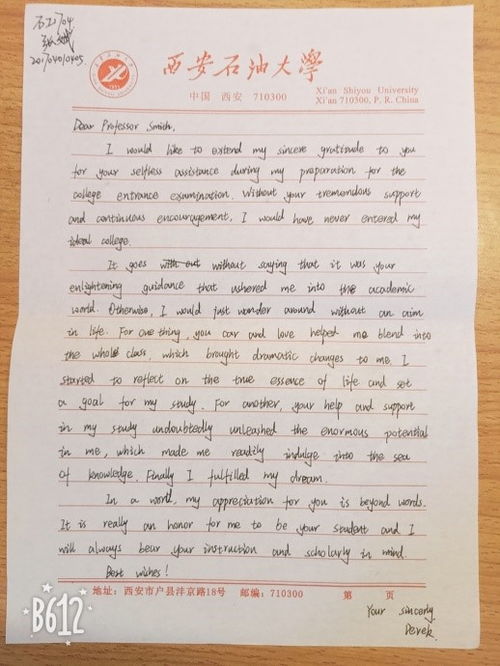 石工1704
201704010405
西安石油大學
中国 西安 710300
Xi'an Shiyou University
Xi'an 710300, P. R. China
Dear Professor Smith,
I would like to extend my sincere gratitude to you
for your selfless assistance during my preparation for the
college entrance examination. Without your tremendous support
and continuous encouragement, I would have never entered my
ideal college.
It goes with out without saying that it was your
enlightening guidance that ushered me into the academic
world. Otherwise, I would just wonder around without an aim
in life. For one thing, you car and love helped me blend into
the whole class, which brought dramatic changes to me. I
started to reflect on the true essence of life and set
a goal for my study. For another, your help and support
in my study undoubtedly unleashed the enormous potential
in me, which made me readily indulge into the sea
of knowledge. Finally I fulfilled my dream.
In a word, my appreciation for you is beyond words.
It is really an honor for me to be your student and I
will always bear your instruction and scholarly in mind.
Best wishes!
地址：西安市户县沣京路18号 邮编：710300 第 页
Your sincerly
Derek.
B612